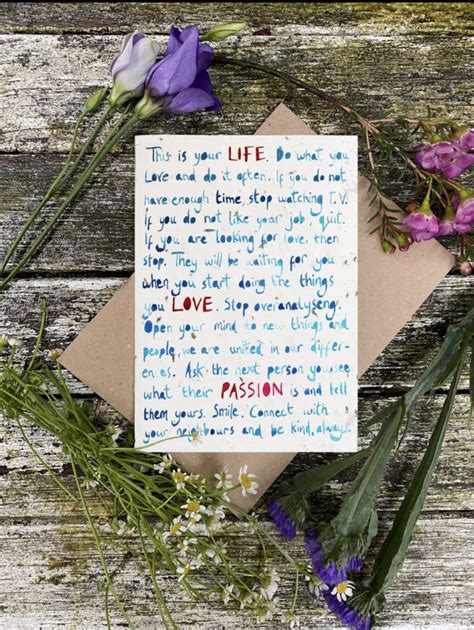 This is your LIFE. Do what you
Love and do it often. If you do not
have enough time, stop watching T.V.
If you do not like your job, quit.
If you are looking for love, then
stop. They will be waiting for you
when you start doing the things
you LOVE. Stop overanalyseng.
Open your mind to new things and
people, we are united in our differ-
ences. Ask the next person you see
what their PASSION is and tell
them yours. Smile. Connect with
your neighbours and be kind, always.